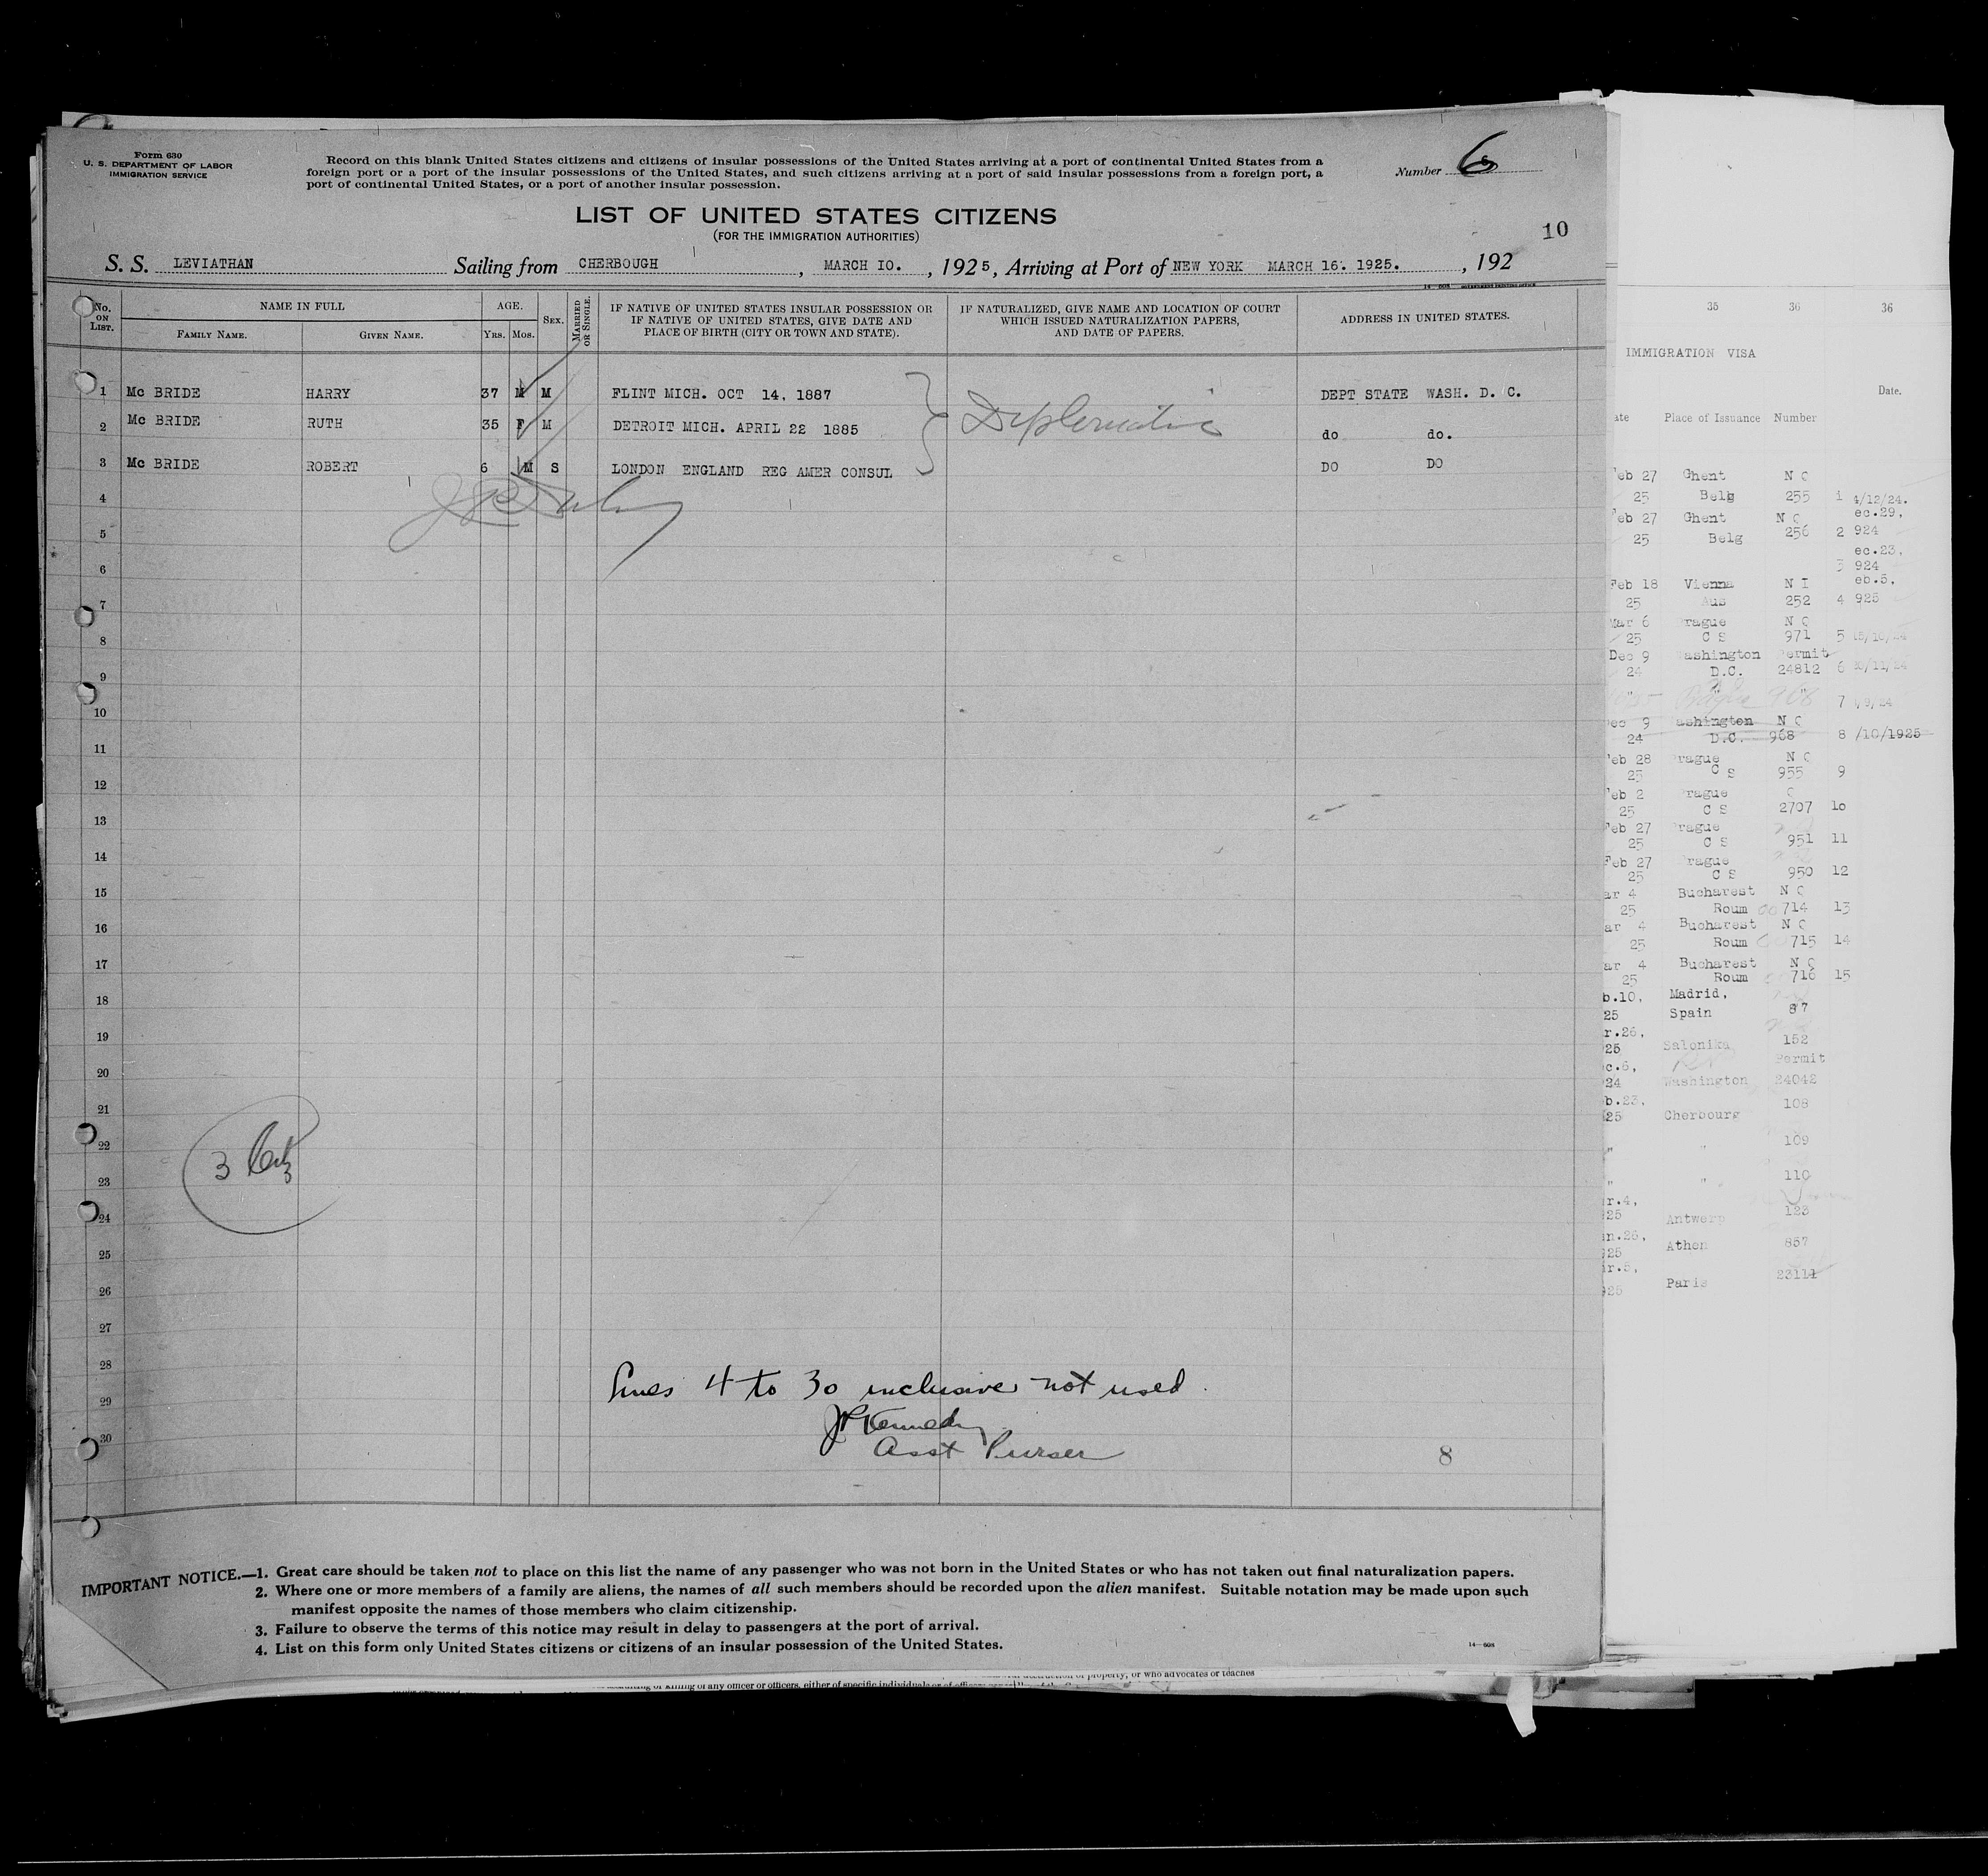 Form 630
U. S. DEPARTMENT OF LABOR
IMMIGRATION SERVICE
Record on this blank United States citizens and citizens of insular possessions of the United States arriving at a port of continental United States from a
foreign port or a port of the insular possessions of the United States, and such citizens arriving at a port of said insular possessions from a foreign port, a
port of continental United States, or a port of another insular possession.
Number 6
LIST OF UNITED STATES CITIZENS
(FOR THE IMMIGRATION AUTHORITIES)
10
S. S. LEVIATHAN Sailing from CHERBOUGH , MARCH IO. , 1925, Arriving at Port of NEW YORK MARCH 16. 1925. , 192
14—608 GOVERNMENT PRINTING OFFICE
No. ON LIST.
NAME IN FULL
FAMILY NAME. GIVEN NAME.
AGE.
YRS. MOS.
SEX.
MARRIED OR SINGLE.
IF NATIVE OF UNITED STATES INSULAR POSSESSION OR
IF NATIVE OF UNITED STATES, GIVE DATE AND
PLACE OF BIRTH (CITY OR TOWN AND STATE).
IF NATURALIZED, GIVE NAME AND LOCATION OF COURT
WHICH ISSUED NATURALIZATION PAPERS,
AND DATE OF PAPERS.
ADDRESS IN UNITED STATES.
1 Mc BRIDE HARRY 37 M M FLINT MICH. OCT 14, 1887 DEPT STATE WASH. D. C.
2 Mc BRIDE RUTH 35 F M DETROIT MICH. APRIL 22 1885 do do.
Diplomatic
3 Mc BRIDE ROBERT 6 M S LONDON ENGLAND REG AMER CONSUL DO DO
4
5
6
7
8
9
10
11
12
13
14
15
16
17
18
19
20
21
22
3
23
24
25
26
27
28
Lines 4 to 30 inclusive not used.
29
JP Kennedy
30
Asst Purser
8
IMPORTANT NOTICE.—1. Great care should be taken not to place on this list the name of any passenger who was not born in the United States or who has not taken out final naturalization papers.
2. Where one or more members of a family are aliens, the names of all such members should be recorded upon the alien manifest. Suitable notation may be made upon such
manifest opposite the names of those members who claim citizenship.
3. Failure to observe the terms of this notice may result in delay to passengers at the port of arrival.
4. List on this form only United States citizens or citizens of an insular possession of the United States.
14—608
property, or who advocates or teaches
of killing of any officer or officers, either of specific individuals or of
35 36 36
IMMIGRATION VISA
Date.
Place of Issuance Number
eb 27 Ghent N Q
25 Belg 255 1 4/12/24.
eb 27 Ghent N Q ec.29,
25 Belg 256 2 924
ec.23,
3 924
Feb 18 Vienna N I eb.5,
25 Aus 252 4 925
Mar 6 rague N Q
25 C S 971 5
Dec 9 ashington ermit
24 D.C. 24812 6
7
ec 9 ashington N Q
24 D.C. 968 8 /10/1925
eb 28 rague N Q
25 C S 955 9
eb 2 rague Q
25 C S 2707 10
eb 27 rague
25 C S 951 11
eb 27 rague
25 C S 950 12
ar 4 Bucharest N Q
25 Roum 714 13
ar 4 Bucharest N Q
25 Roum 715 14
ar 4 Bucharest N Q
25 Roum 716 15
b.10, Madrid,
25 Spain 87
r.26,
25 Salonika 152
c.6, Permit
24 Washington 24042
b.23,
25 Cherbourg 108
" " 109
" " 110
r.4,
25 Antwerp 123
n.26,
25 Athen 857
r.5,
925 Paris 23111